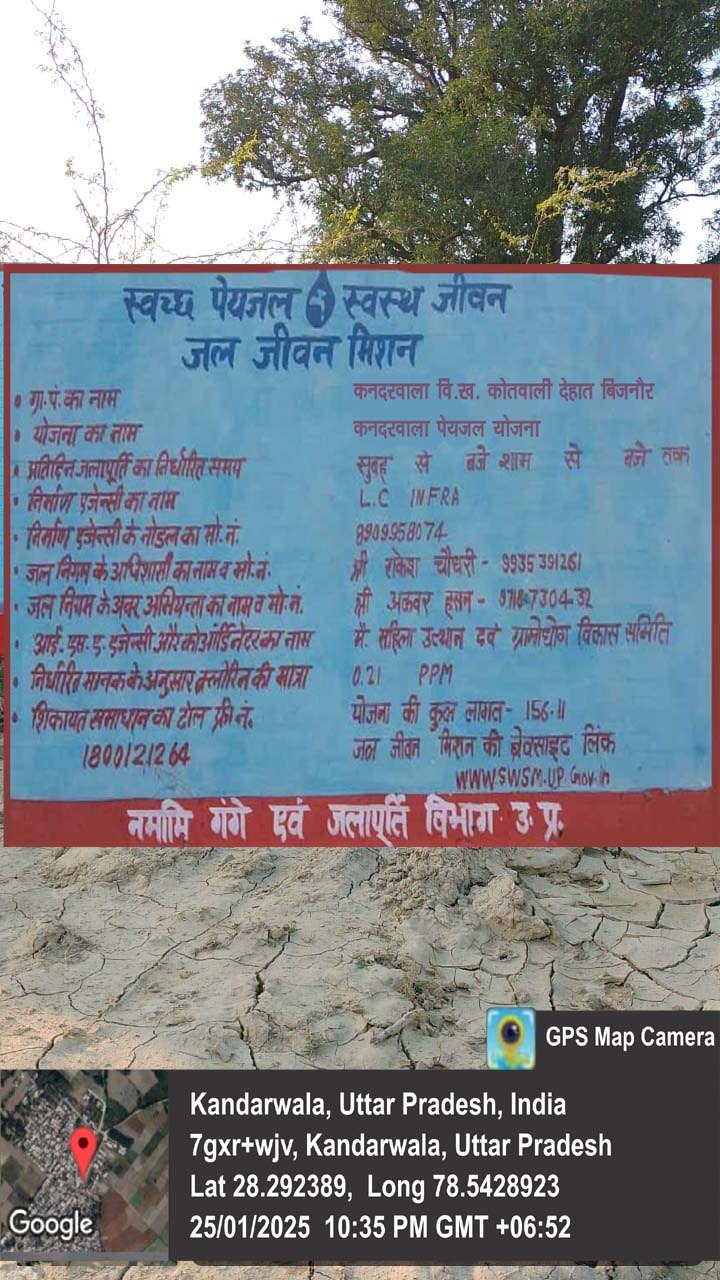 स्वच्छ पेयजल स्वस्थ जीवन
जल जीवन मिशन
• ग्रा.पं.का नाम कनदरवाला वि.ख. कोतवाली देहात बिजनौर
• योजना का नाम कनदरवाला पेयजल योजना
• प्रतिदिन जलापूर्ति का निर्धारित समय सुबह से बजे शाम से बजे तक
• निर्माण एजेन्सी का नाम L.C INFRA
• निर्माण एजेन्सी के नोडल का मो.नं. 8909958074
• जल निगम के अधिशासी का नाम व मो.नं. श्री राकेश चौधरी - 9935391261
• जल निगम के अवर अभियन्ता का नाम व मो.नं. श्री अकबर हसन - 8718-7304-32
• आई.एस.ए.एजेन्सी और कोऑर्डिनेटर का नाम मै. महिला उत्थान एवं ग्रामोद्योग विकास समिति
• निर्धारित मानक के अनुसार क्लोरिन की मात्रा 0.21 PPM
• शिकायत समाधान का टोल फ्री नं. योजना की कुल लागत - 156.11
1800121264 जल जीवन मिशन की बेवसाइट लिंक
WWW.SWSM.UP.Gov.in
नमामि गंगे एवं जलापूर्ति विभाग उ.प्र.
GPS Map Camera
Kandarwala, Uttar Pradesh, India
7gxr+wjv, Kandarwala, Uttar Pradesh
Lat 28.292389, Long 78.5428923
25/01/2025 10:35 PM GMT +06:52
Google